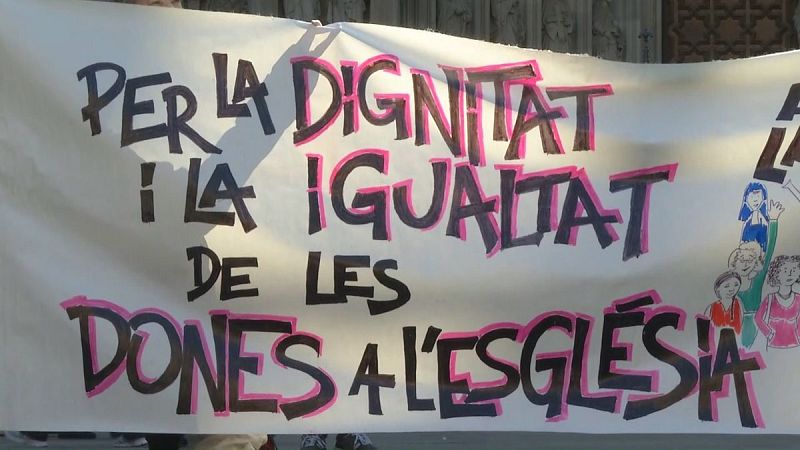 PER LA DIGNITAT
i LA IGUALTAT
DE LES
DONES A L'ESGLÉSiA